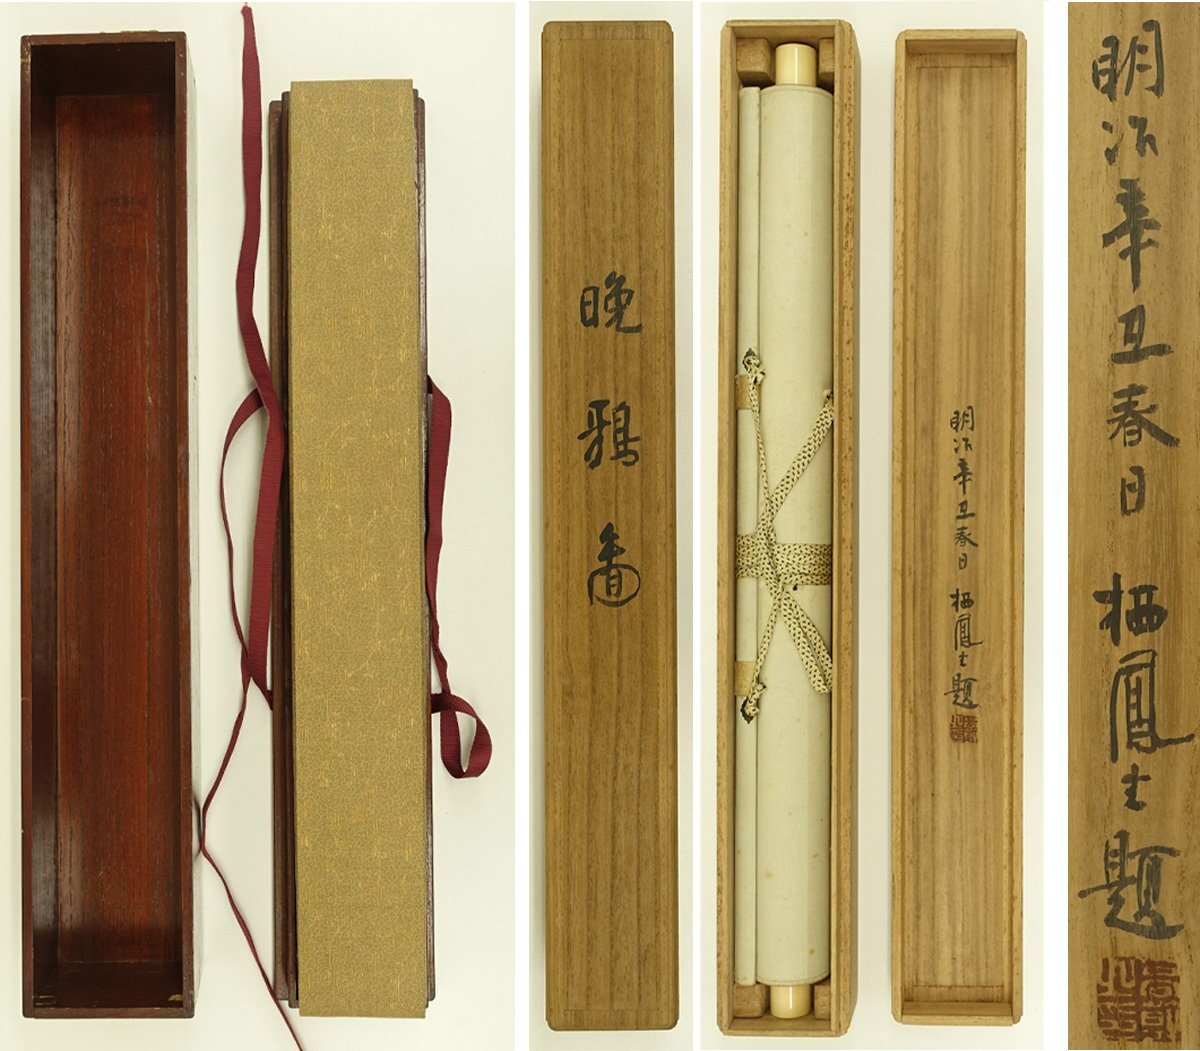 晩鴉圖
明治辛丑春日 栖鳳士題
明治辛丑春日 栖鳳士題